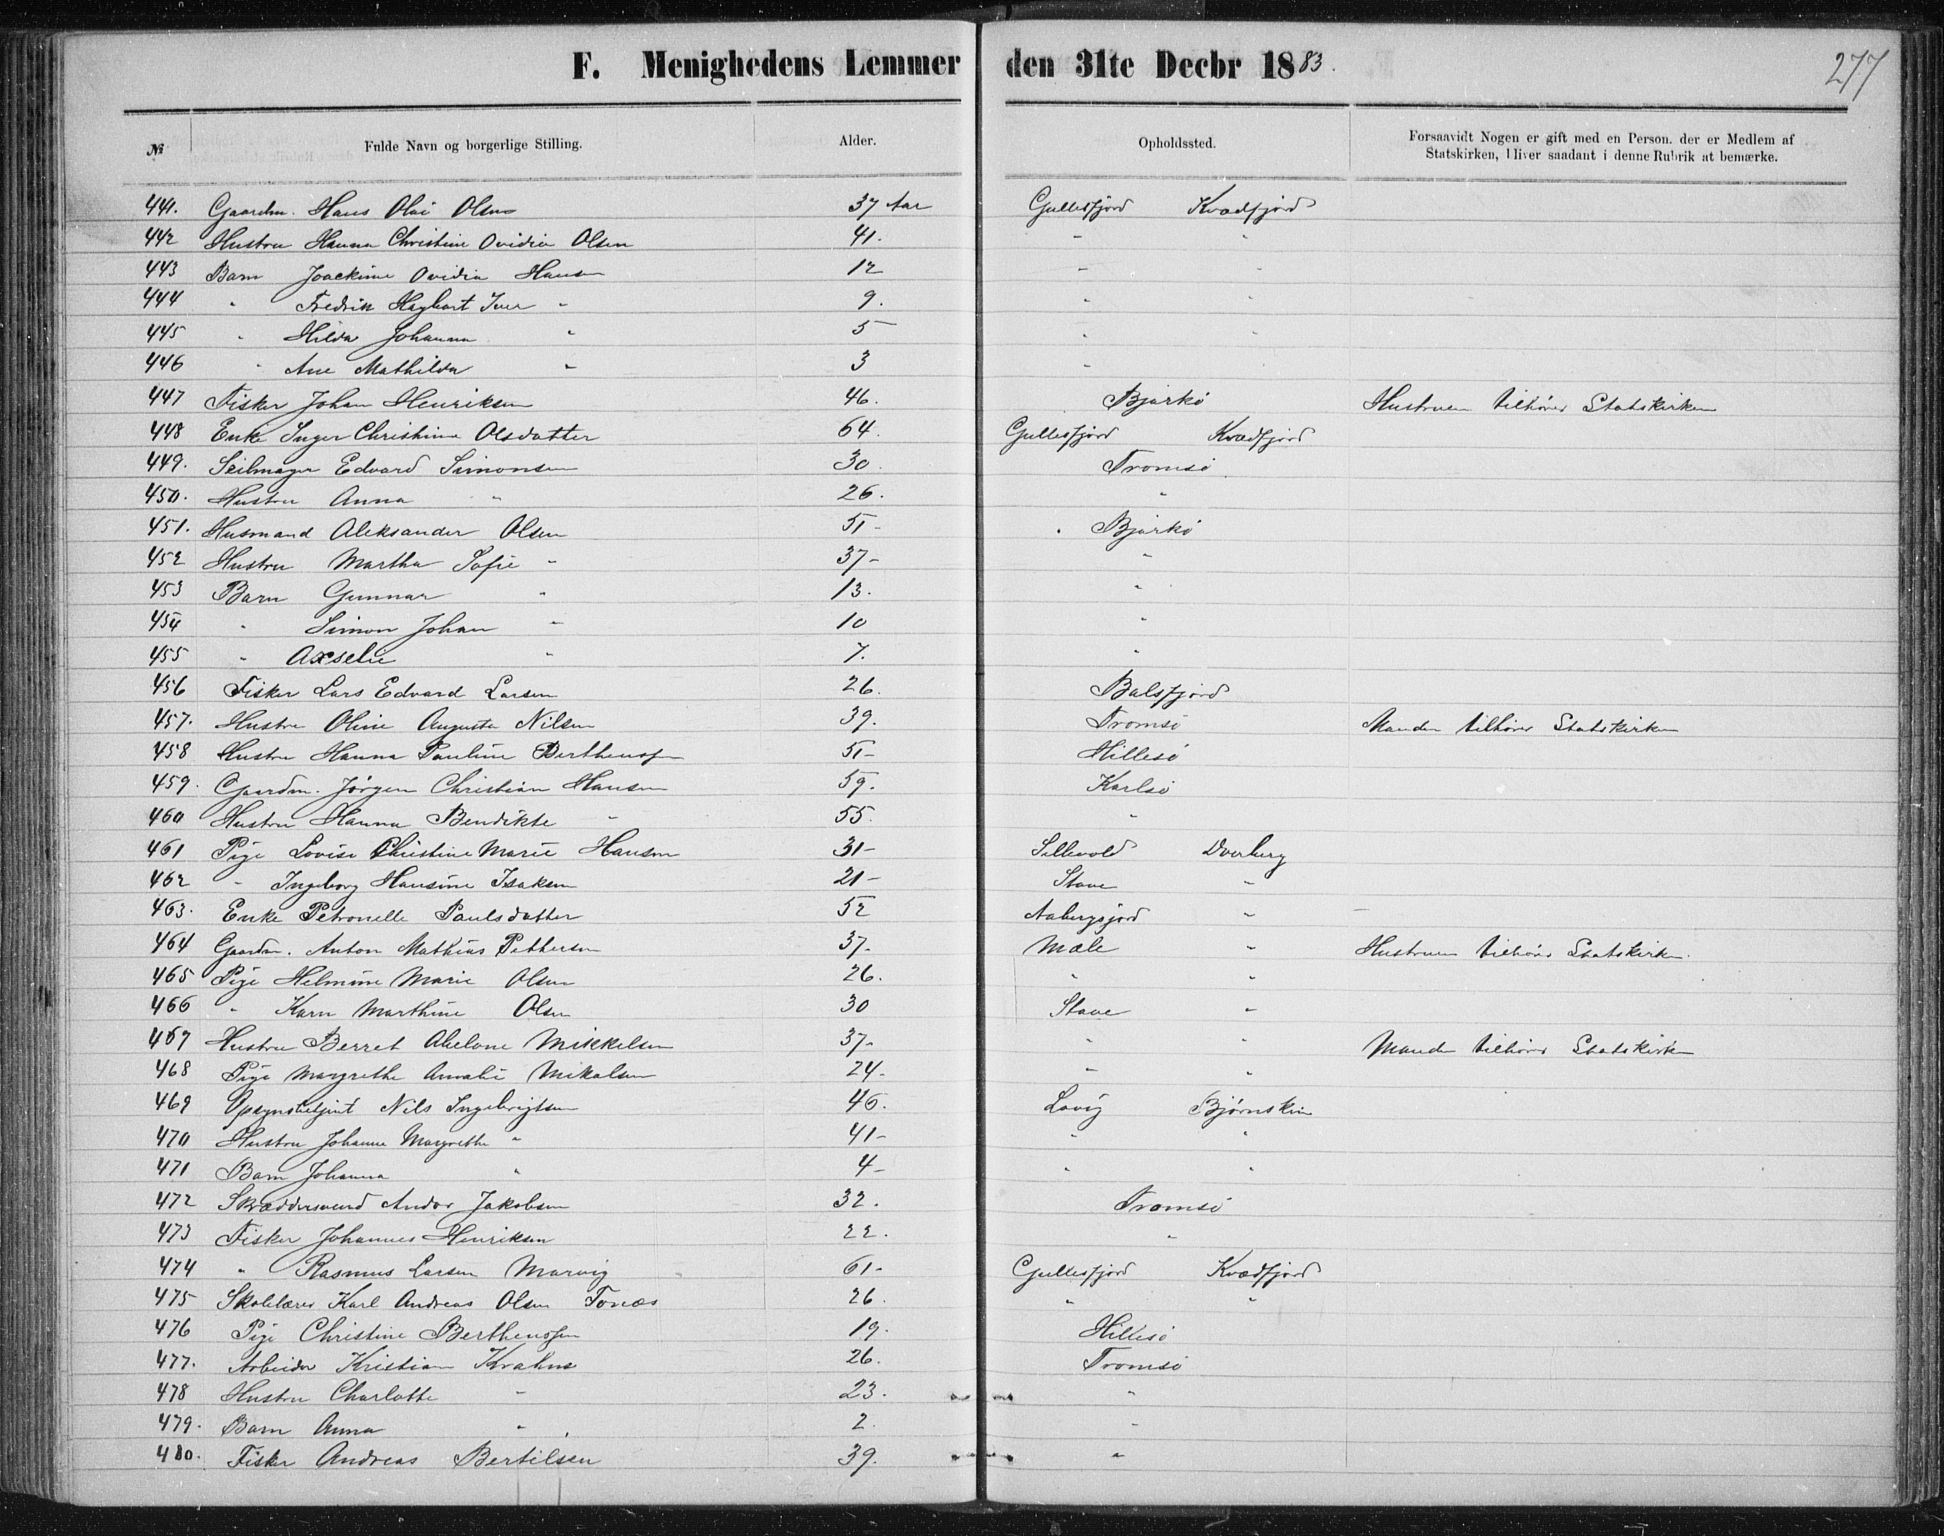 F. Menighedens Lemmer den 31te Decbr 1883.
277
№ Fulde Navn og borgerlige Stilling. Alder. Opholdssted. Forsaavidt Nogen er gift med en Person, der er Medlem af
Statskirken, bliver saadant i denne Rubrik at bemærke.
441. Gaardm. Hans Olai Olsen 37 Aar Gullesfjord Kvædfjord
442 Hustru Hanna Christine Ovidia Olsen 41. " "
443 Barn Joackime Ovidia Hansen 12 " "
444 " Fredrik Hagbart Iver " 9. " "
445 " Hilda Johanna " 5 " "
446 " Ane Mathilda " 3 "
447 Fisker Johan Henriksen 46. Bjarkö Hustruen tilhører Statskirken
448 Enke Inger Christine Olsdatter 64. Gullesfjord Kvædfjord
449. Seilmager Edvard Simonsen 30. Tromsö
450. Hustru Anna " 26. "
451. Husmand Aleksander Olsen 51- Bjarkö
452 Hustru Martha Sofie " 37- "
453 Barn Gunnar " 13. "
454 " Simon Johan " 10 "
455 " Axselie " 7. "
456 Fisker Lars Edvard Larsen 26. Balsfjord
457. Hustru Oline Augusta Nilsen 39. Tromsö Manden tilhører Statskirken
458 Hustru Hanna Pauline Berthenssen 51- Hillesö
459. Gaardm. Jørgen Christian Hansen 59. Karlsö
460 Hustru Hanna Bendikte " 55. "
461 Pige Lovise Christine Marie Hansen 31- Sellevold Dverberg
462 " Ingeborg Hansine Isaksen 21- Stave "
463. Enke Petronelle Paulsdatter 52 Aabergsjord "
464 Gaardm. Anton Mathias Pettersen 37. Mæle " Hustruen tilhører Statskirken.
465 Pige Helmine Marie Olsen 26. " "
466 " Karn Marthine Olsen 30 Stave "
467 Hustru Berret Abelone Mikkelsen 37- " " Manden tilhører Statskirken
468 Pige Margrethe Amalie Mikalsen 24- " "
469 Opsynsbetjent Nils Ingebrigtsen 46. Lovig Bjørnskin
470 Hustru Johanne Margrethe " 41- " "
471 Barn Johanna " 4- " "
472 Skræddersvend Andor Jakobsen 32. Tromsö
473 Fisker Johannes Henriksen 22. "
474 " Rasmus Larsen Marvig 61- Gullesfjord Kvædfjord
475 Skolelærer Karl Andreas Olsen Tonæs 26. " "
476 Pige Christine Berthenssen 19. Hillesö
477. Arbeider Kristian Krahns 26. Tromsö
478 Hustru Charlotte " 23. "
479. Barn Anna " 2. "
480. Fisker Andreas Bertilsen 39. "